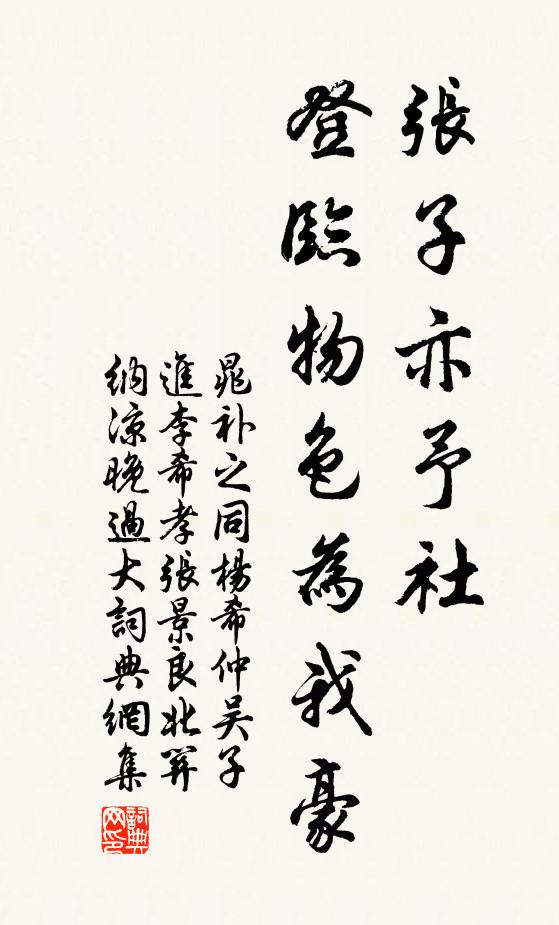 張子亦予社
登臨物色為我豪
晁補之同楊希仲吳子
進李希孝張景良北羿
納涼晚過大詞典網集
詞典网印